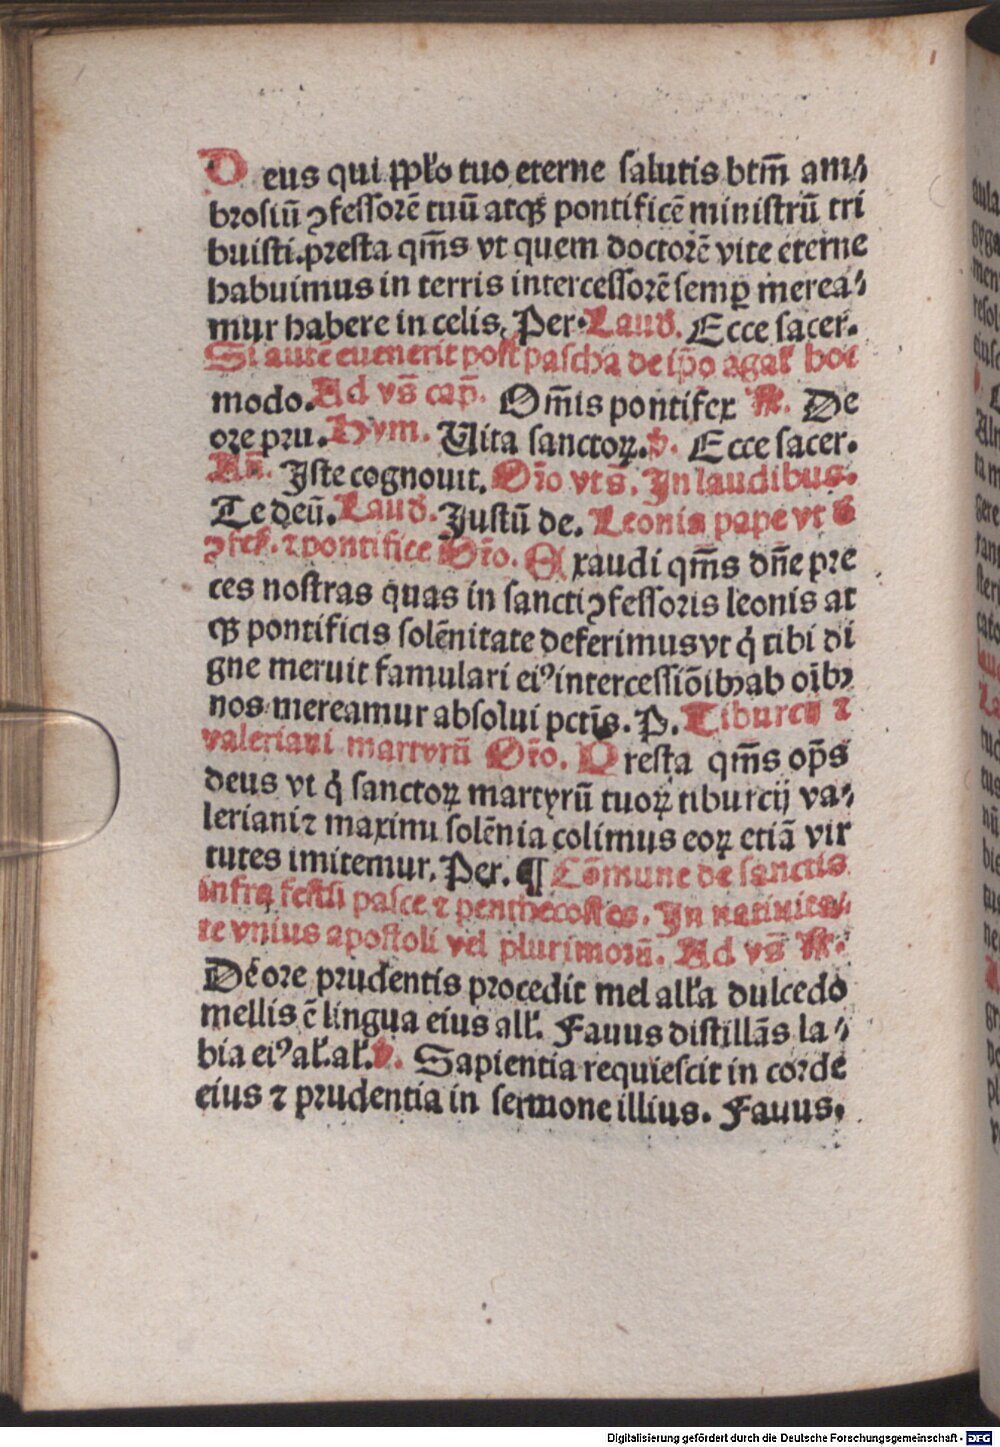 Deus qui ppl'o tuo eterne salutis btm̄ am⸗
brosiū ꝯfessorē tuū atqꝫ pontificē ministrū tri
buisti. presta qm̄s vt quem doctorē vite eterne
habuimus in terris intercessorē semꝑ merea⸗
mur habere in celis, Per. Laud. Ecce sacer.
Si autē euenerit post pascha de ip̄o agat̉ hoc
modo. Ad vs̄ cap̄. Om̄is pontifex ℟. De
ore pru. Hym. Uita sanctoꝝ. ℣. Ecce sacer.
An̄. Iste cognouit. Or̄o vts̄. In laudibus.
Te deū. Laud. Iustū de. Leonis pape vt
ꝯfes. ⁊ pontifice Or̄o. Exaudi qm̄s dn̄e pre
ces nostras quas in sancti ꝯfessoris leonis at
qꝫ pontificis solēnitate deferimus vt q̇ tibi di
gne meruit famulari ei⁹ intercessiōibꝫ ab oībꝫ
nos mereamur absolui pctīs. P. Tiburcij ⁊
valeriani martyrū Or̄o. Presta qm̄s op̄s
deus vt q̇ sanctoꝝ martyrū tuoꝝ tiburcij va⸗
leriani ⁊ maximi solēnia colimus eoꝝ etiā vir
tutes imitemur. Per. ¶ Cōmune de sanctis
infra festū pasce ⁊ penthecostes. In natiuita⸗
te vnius apostoli vel plurimorū. Ad vs̄ ℟.
De ore prudentis procedit mel all'a dulcedo
mellis ē lingua eius all'. Fauus distillās la⸗
bia ei⁹ al'. al'. ℣. Sapientia requiescit in corde
eius ⁊ prudentia in sermone illius. Fauus.
Digitalisierung gefördert durch die Deutsche Forschungsgemeinschaft - DFG